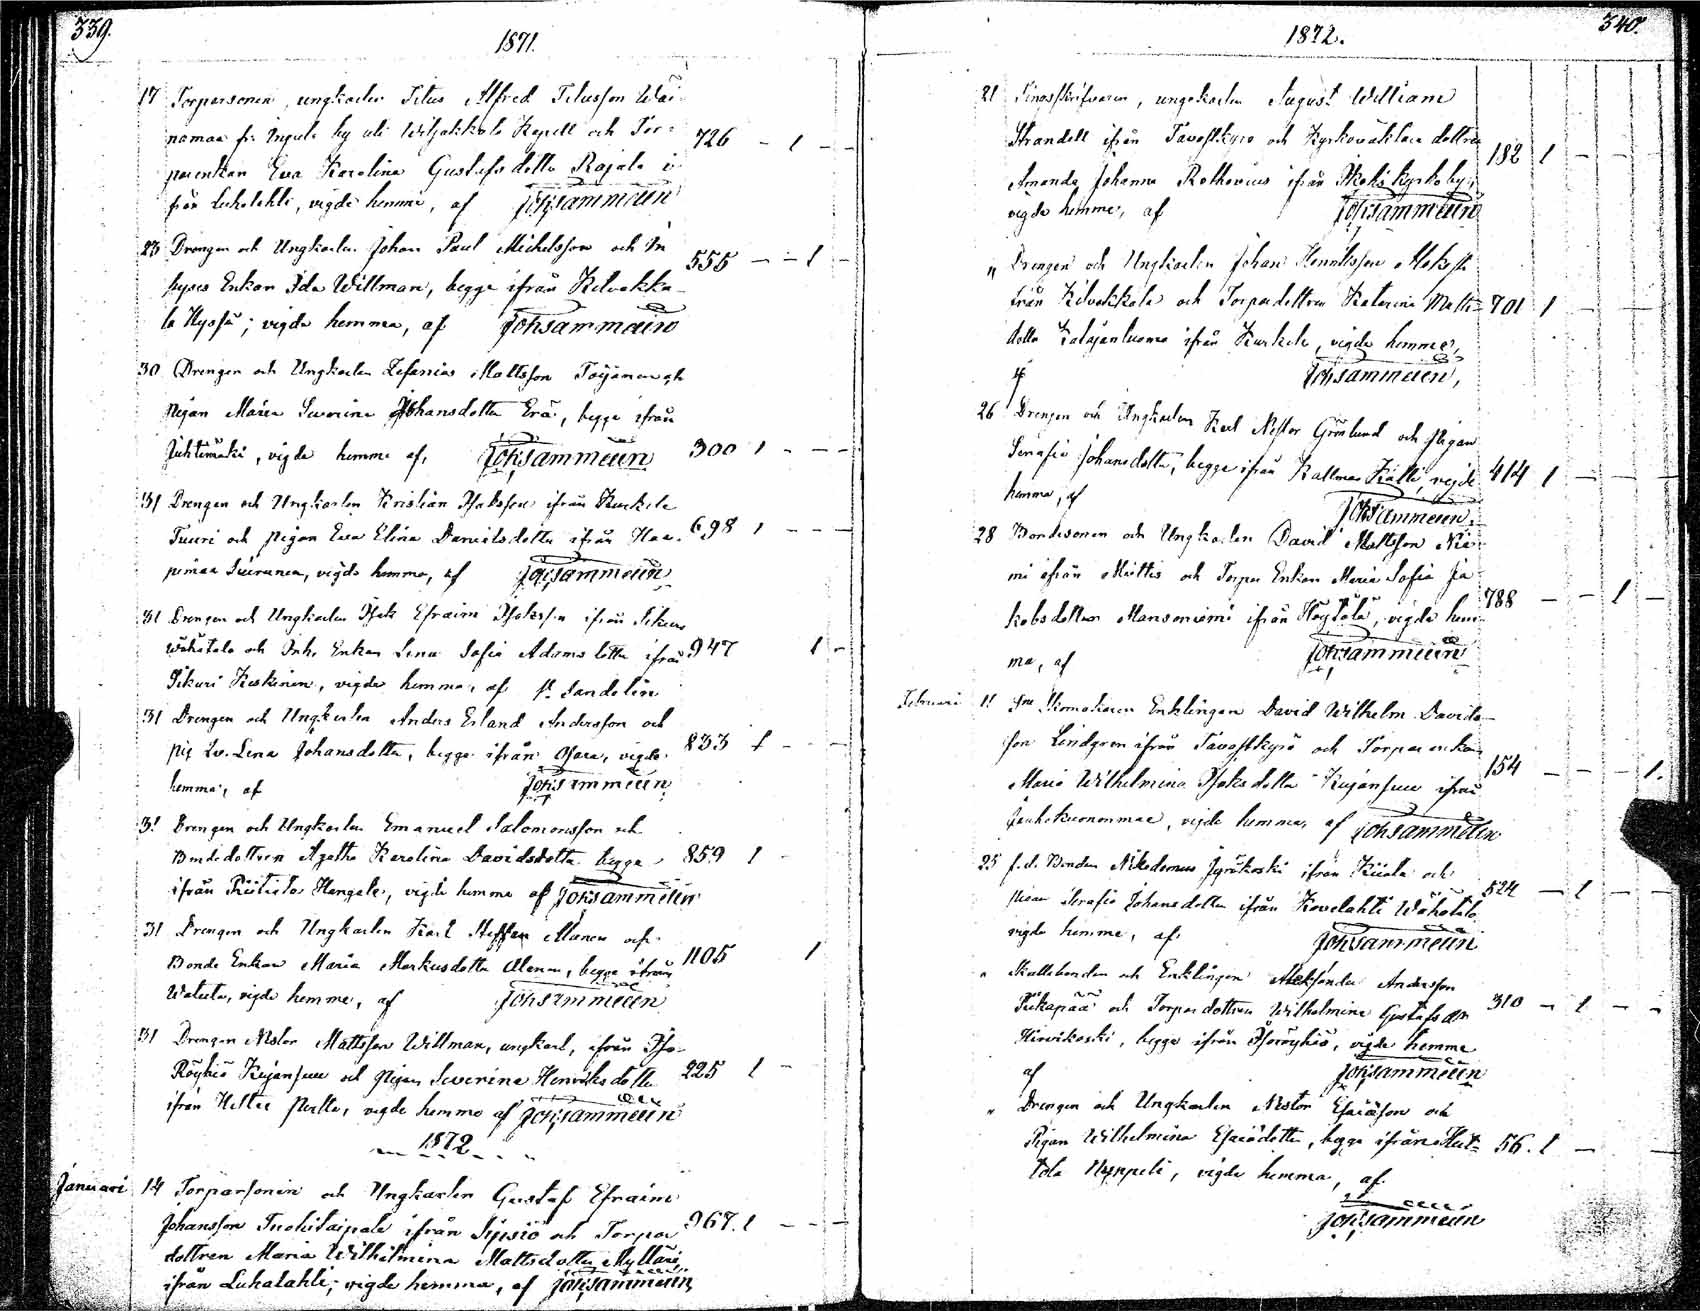 339.
1871.
17 Torparsonen, ungkarlen Titus Alfred Titusson Wäi-
namaa fr. by uti Wiljakkala Kapell och Tor-
parenkan Eva Karolina Gustafsdotter Rajala i-
från Luhalahti, vigde hemma, af Joh: Sammelin 726 - 1 - -
23 Drengen och Ungkarlen Johan Paul Michelsson och In-
hyses Enkan Ida Willman, begge ifrån Kilvakka-
la Hyssä; vigde hemma, af Joh: Sammelin 555 - - 1 -
30 Drengen och Ungkarlen Zefanias Mattsson och
pigan Maria Severina Johansdotter Erä, begge ifrån
Juhtimäki, vigde hemma af, Joh: Sammelin 300 1 - - -
31 Drengen och Ungkarlen Kristian ifrån Kurkela
Tuuri och pigan Eva Elina Danielsdotter ifrån Haa-
pimaa vigde hemma, af Joh: Sammelin 698 1 - - -
31 Drengen och Ungkarlen Isak Efraim Isaksson ifrån Sikuri
Wähätalo och Inh. Enkan Lena Sofia Adamsdotter ifrån
Sikuri Keskinen, vigde hemma, af Sandelin 947 1 -
31 Drengen och Ungkarlen Anders Erland Andersson och
pig. Lena Johansdotter, begge ifrån Osara, vigde
hemma, af Joh: Sammelin 833 1 - - -
31 Drengen och Ungkarlen Emanuel Salomonsson och
Bondedottren Agatha Karolina Davidsdotter begge
ifrån Riitiala Hangala, vigde hemma af Joh: Sammelin 859 1 -
31 Drengen och Ungkarlen Karl Steffan Manen och
Bonde Enkan Maria Markusdotter begge ifrån
Watula, vigde hemma, af Joh: Sammelin 1105 1
31 Drengen Nestor Mattsson Willman, ungkarl, ifrån Iso-
Röyhiö Kujansuu och Pigan Severina Henriksdotter
ifrån vigde hemma af Joh: Sammelin 225 1 -
1872
Januari 14 Torparsonen och Ungkarlen Gustaf Efraim
Johansson Tuohitaipale ifrån Sipsiö och Torpar
dottren Maria Wilhelmina Mattsdotter Mylläri
ifrån Luhalahti, vigde hemma, af Joh: Sammelin 967. 1 - - -
340.
1872.
21 Tingsskrifvaren, ungkarlen August William
Strandell ifrån Tavastkyro och Kyrkoväktare dottren
Amanda Johanna Rothovius ifrån Ikalis kyrkoby;
vigde hemma, af Joh: Sammelin 182 1 - - -
" Drengen och Ungkarlen Johan
från Kilvakkala och Torpardottren Katarina Matts-
dotter Kalajanluoma ifrån Kurkela, vigde hemma,
af Joh: Sammelin, 701 1 - - -
26 Drengen och Ungkarlen Karl Nestor Grönlund och Pigan
Serafia Johansdotter, begge ifrån Kallmaa Källi, vigde
hemma, af Joh: Sammelin. 414 1 - - -
28 Bondesonen och Ungkarlen David Mattsson Nie-
mi ifrån Miettis och Torpar Enkan Maria Sofia Ja-
kobsdotter Mansoniemi ifrån vigde hem-
ma, af Joh: Sammelin 788 - - 1 -
Februari 11 Skomakaren Enklingen David Wilhelm Davids-
son Lindgren ifrån Tavastkyrö och Torparenkan
Maria Wilhelmina Isaksdotter Kujansuu ifrån
vigde hemma, af Joh: Sammelin 154 - - - 1.
25 f.d. Bonden Nikodemus Jyräkoski ifrån Kiiala och
pigan Serafia Johansdotter ifrån Kovelahti Wähätalo,
vigde hemma, af. Joh: Sammelin 524 - 1 - -
" Skattebonden och Enklingen Alexander Andersson
Piikapää och Torpardottren Wilhelmina Gustafsdtr
Hirvikoski, begge ifrån Isoröyhiö, vigde hemma
af Joh: Sammelin 310 - 1 - -
" Drengen och Ungkarlen Nestor Esaiasson och
Pigan Wilhelmina Esaiædotter, begge ifrån Heit-
tola Nyppeli, vigde hemma, af 56. 1 -
Joh: Sammelin